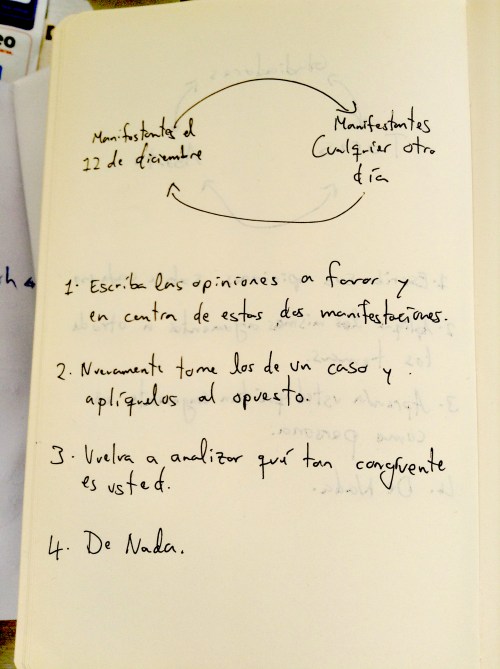 Manifestantes el
12 de diciembre
Manifestantes
Cualquier otro
día
1. Escriba las opiniones a favor y
en contra de estas dos manifestaciones.
2. Nuevamente tome los de un caso y
aplíquelos al opuesto.
3. Vuelva a analizar qué tan congruente
es usted.
4. De Nada.